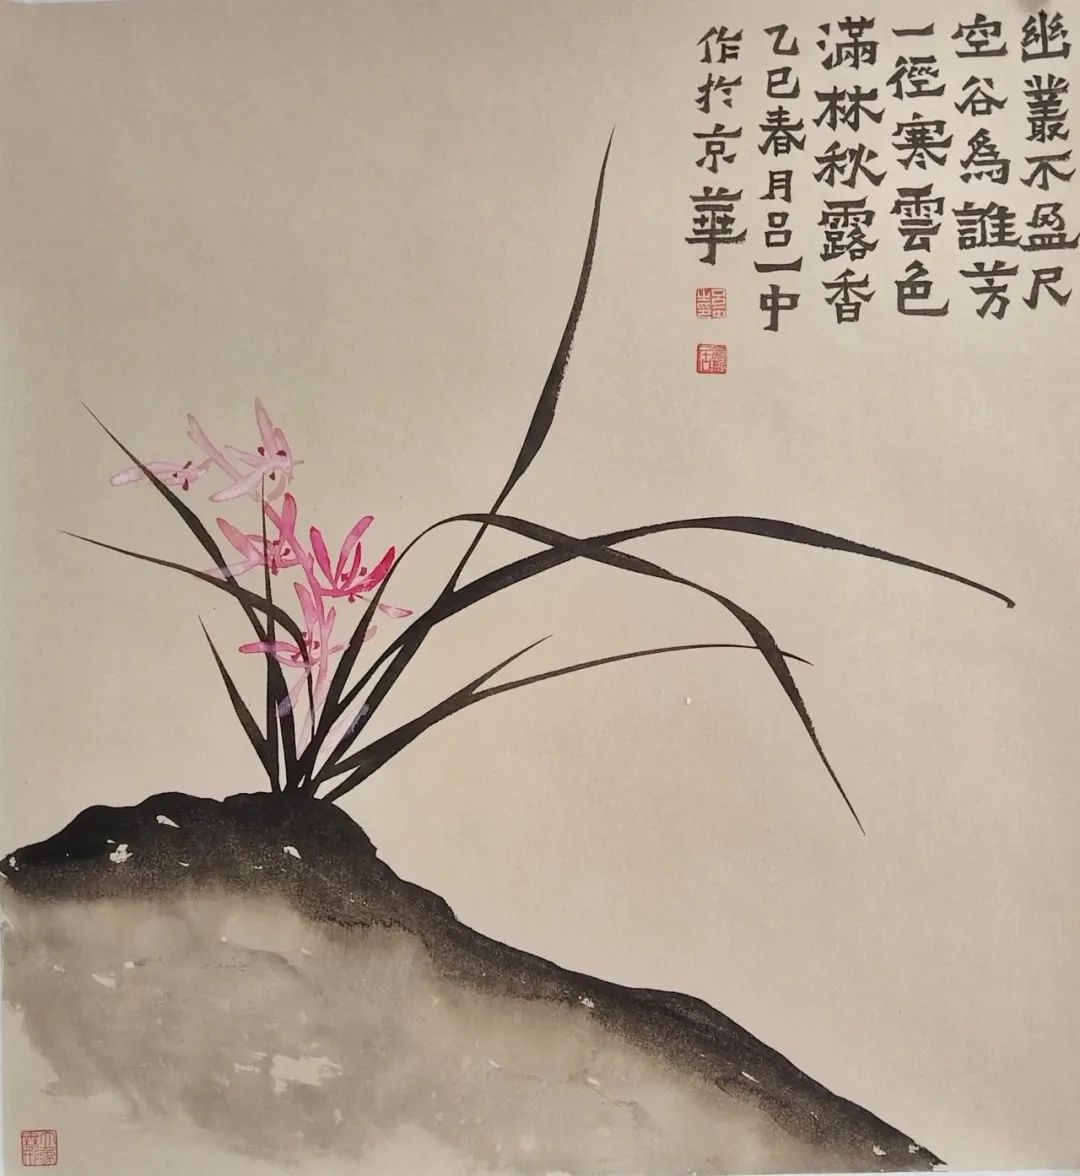 幽叢不盈尺
空谷為誰芳
一徑寒雲色
滿林秋露香
乙巳春月吕一中
作於京華